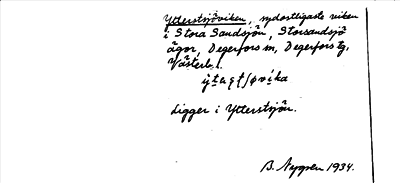 Ytterstsjöviken, sydostligaste viken
i Stora Sandsjön, Storsandsjö
ägor, Degerfors sn, Degerfors tg,
Västerb. l.
Ligger i Ytterstsjön.
1934.